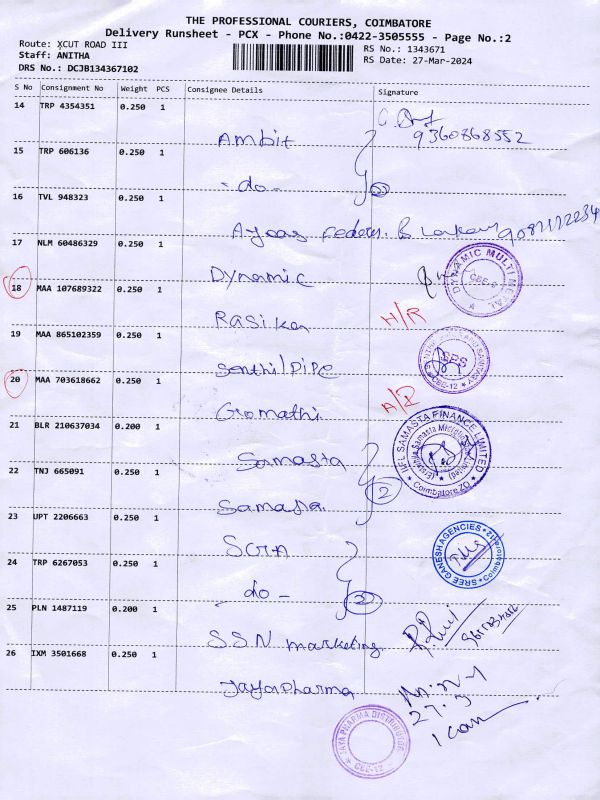 THE PROFESSIONAL COURIERS, COIMBATORE
Delivery Runsheet - PCX - Phone No.:0422-3505555 - Page No.:2
Route: XCUT ROAD III
RS No.: 1343671
Staff: ANITHA
RS Date: 27-Mar-2024
DRS No.: DCJB134367102
S No Consignment No Weight PCS Consignee Details Signature
14 TRP 4354351 0.250 1
Ambit 9360868552
15 TRP 606136 0.250 1
-do-
16 TVL 948323 0.250 1
17 NLM 60486329 0.250 1
Dynamic
DYNAMIC MULTI METAL
CBE-9
18 MAA 107689322 0.250 1
Rasika H/R
19 MAA 865102359 0.250 1
Senthil Pipe
CBE-12
20 MAA 703618662 0.250 1
Gomathi
21 BLR 210637034 0.200 1
Samasta
IIFL SAMASTA FINANCE LIMITED
Coimbatore ZO
22 TNJ 665091 0.250 1
Samasta 2
23 UPT 2206663 0.250 1
SREE GANESH AGENCIES
24 TRP 6267053 0.250 1
do - 2
25 PLN 1487119 0.200 1
S.S.N marketing
26 IXM 3501668 0.250 1
Jaya Pharma
JAYA PHARMA DISTRIBUTOR
CBE-12